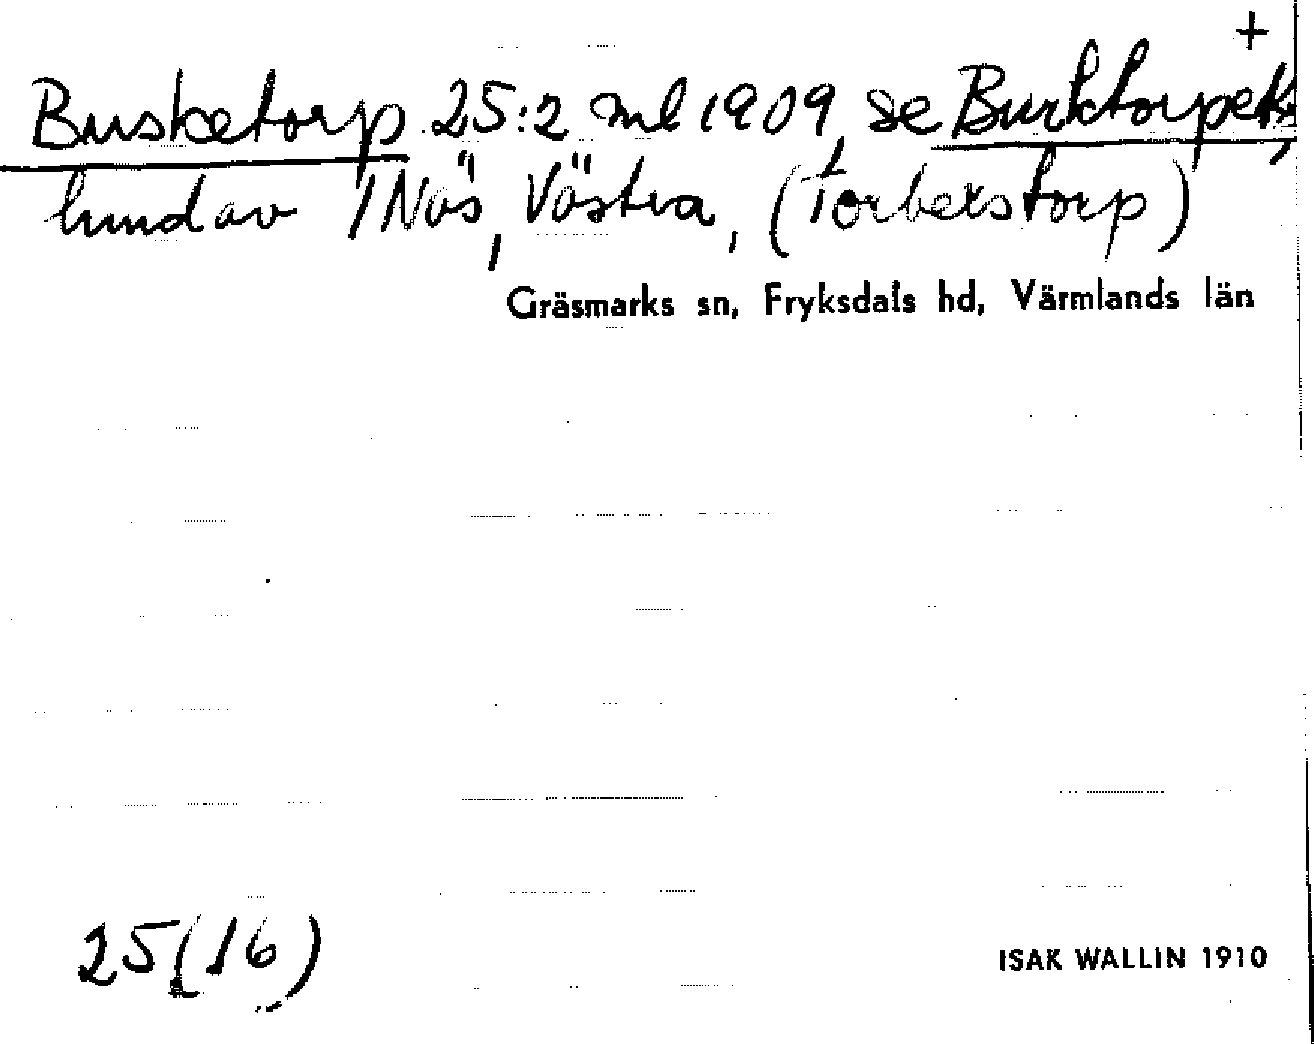 +
Busketorp 25:2 ml 1909, se Burktorpet,
hmdav /Näs, Västra, (Torberstorp)
Gräsmarks sn, Fryksdals hd, Värmlands län
25(16)
ISAK WALLIN 1910